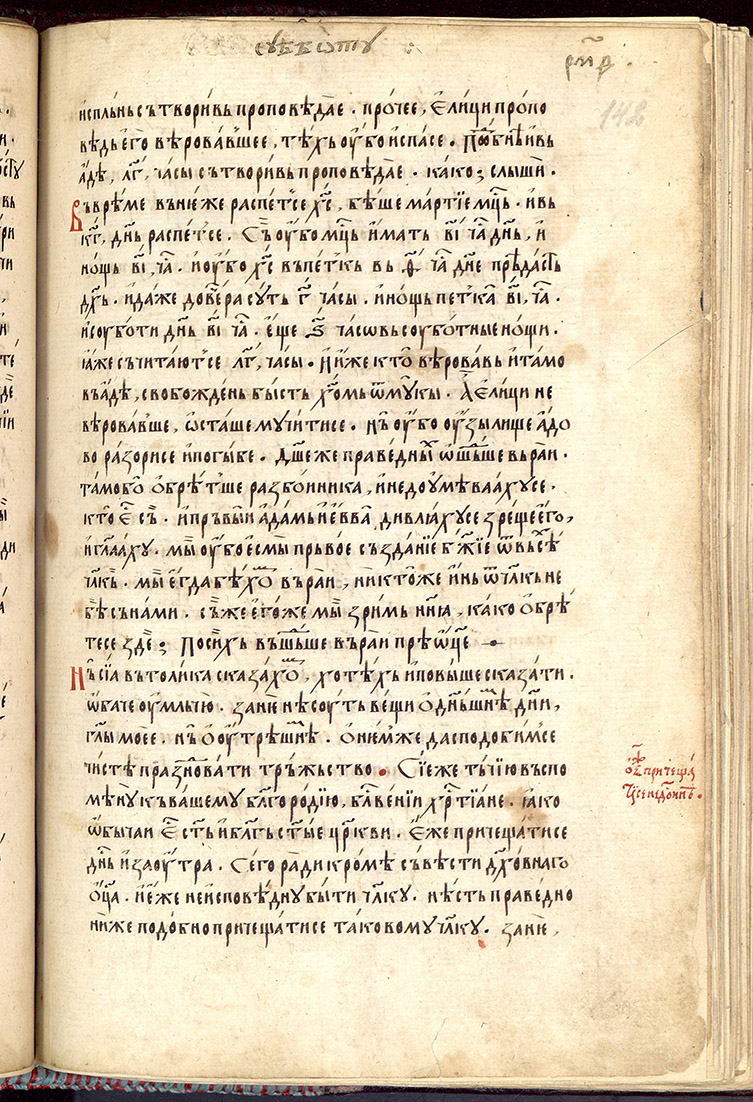 сѹббѡтꙋ :
рм҃д .
148
испльнь сътворивь проповѣдае . прочее, є҆лици пропо
вѣдь є҆го вѣровавшее, тѣхь ѹ҆бо и҆спасе . подобнѣ и҆ вь
а҆дѣ, л҃г, часы сътворивь проповѣдае . како; слыши .
Въ врѣме въ нѥже распетсе х҃с, бѣше мартїе мц҃ь . и҆ вь
к҃г, дн҃ь распетсе . Съ ѹ҆бо мц҃ь и҆мать в҃і ча дн҃ь, и҆
нощь в҃і, ча . и҆ ѹ҆бо х҃с въ петкь вь ѳ҃ ча дн҃е прѣдасть
дх҃ь . и҆ даже до вечера сꙋть г҃ часы . и҆ нощь петка в҃і, ча .
и҆ сѹботи дн҃ь в҃і ча . є҆ще ѕ҃ часѡвь сѹботные нощи .
ꙗ҆же съчитают се л҃г, часы . И҆ и҆же кто вѣровавь и҆ тамо
въ а҆дѣ, свобождень бысть х҃ом ѿ мꙋкы . А҆ є҆лици не
вѣровавше, ѡ҆сташе мꙋчити се . нъ ѹ҆бо ѹ҆зылище а҆до
во разори се и҆ погыбе . дш҃е же праведныхь ѿшьдше вь раи .
тамо бо ѡ҆брѣтше разбоиника, и҆ недоꙋмѣваахꙋ се .
кто є҆ съ . и҆ прьвыи а҆дамь и҆ є҆вва дивлꙗхꙋ се зреще є҆го,
и҆ гл҃ааху . мы ѹ҆бо є҆смы прьвое създанїе бж҃їе ѿ вьсѣ
чл҃кь . мы є҆гда бѣхом въ раи, никтоже и҆нь ѿ чл҃кь не
бѣ съ нами . съ же є҆гоже мы зримь нн҃ꙗ, како ѡ҆брѣ
те се зде; По сихь въшьдше въ раи прѣѡ҆ц҃е —
Нь сїа въ толика сказахом, хотѣхь и҆ повыше сказати .
ѡ҆баче ѹ҆млъчю . занѥ нѣсѹть вещи ѡ҆ дньшнѣ дн҃и,
гл҃ы моее . нъ ѡ҆ ѹ҆трѣшнѣ . ѡ҆ нѥмже да сподобим се
чистѣ празновати трьжьство . Сїе же тьчїю въспо
мѣнꙋ къ вашемꙋ бл҃городїю, бл҃гвенїи хр҃тїане . ꙗ҆ко
ѡ҆бычаи є҆сть и҆ бл҃гь ст҃ые цр҃кви . є҆же причещати се
дн҃ь и҆ заѹ҆тра . Сего ради кромѣ съвѣсти дх҃овнаго
ѻ҆ц҃а . и҆ є҆же неисповѣднꙋ быти чл҃кꙋ . нѣсть праведно
ниже подобно причещати се таковомꙋ чл҃кꙋ . занѥ,